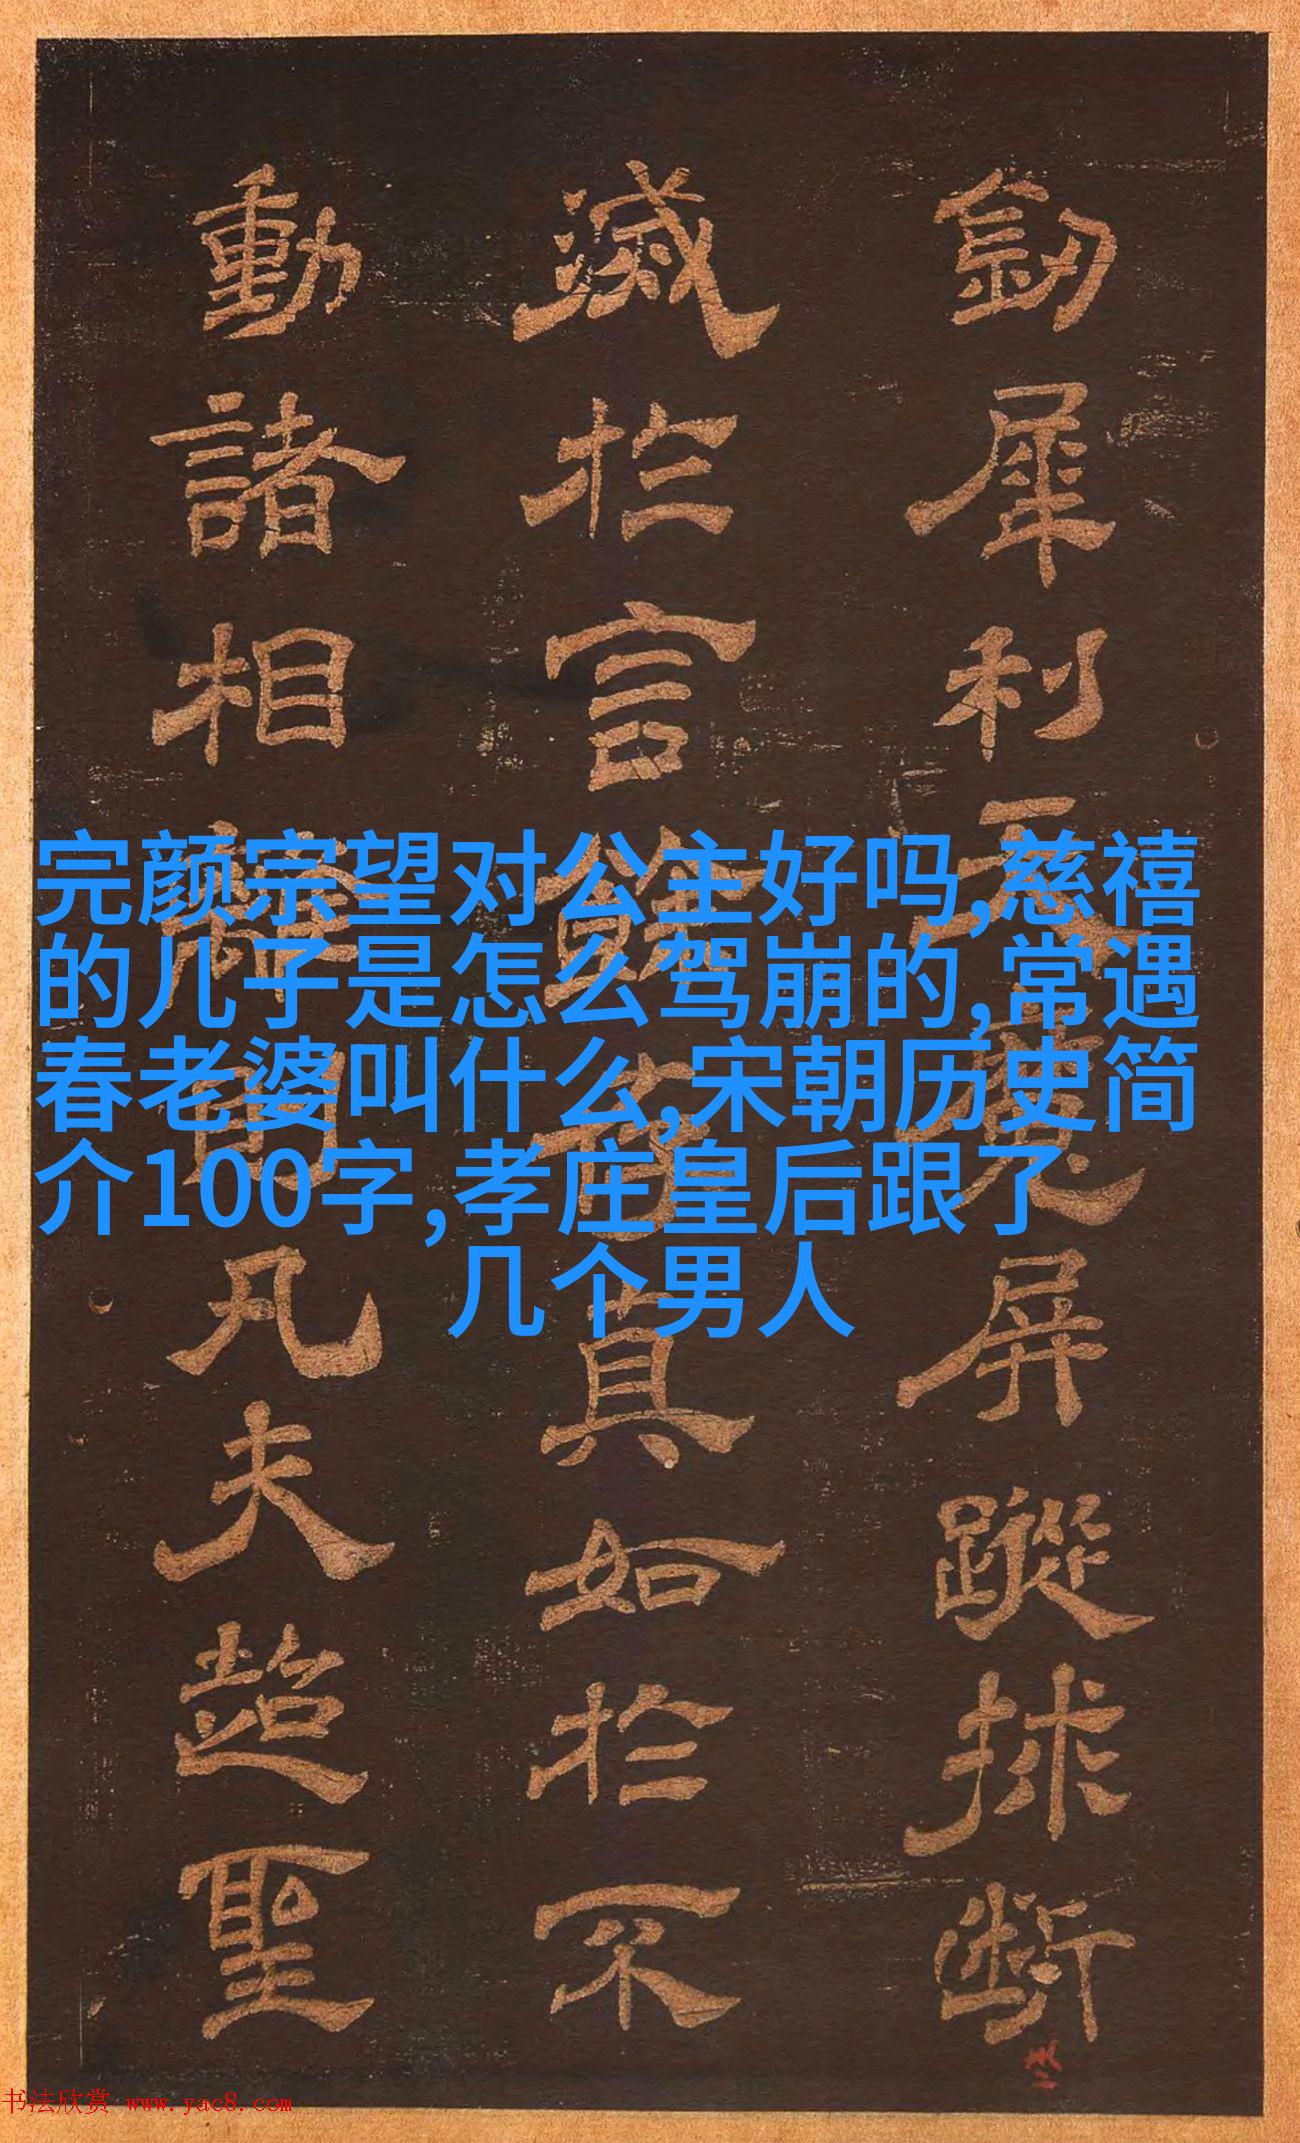 完颜宗望对公主好吗,慈禧
的儿子是怎么驾崩的,常遇
春老婆叫什么,宋朝历史简
介100字,孝庄皇后跟了
几个男人
犀利天魔屏蹤捄斷
滅於言真如於不
動諸相凡夫超聖
书法欣赏 www.yac8.com